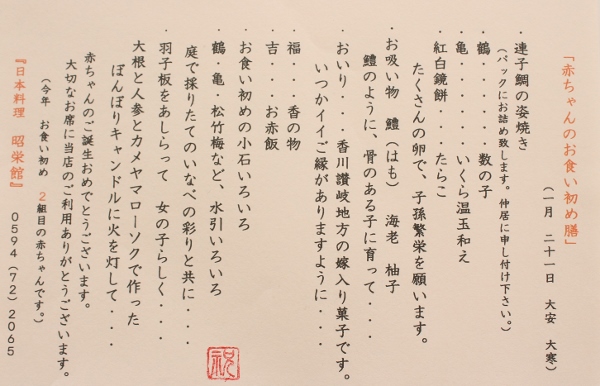 「赤ちゃんのお食い初め膳」
(一月 二十一日 大安 大寒)
・連子鯛の姿焼き
(パックにお詰め致します。仲居に申し付け下さい。)
・鶴・・・・・ 数の子
・亀・・・・・いくら温玉和え
・紅白鏡餅・・・・たらこ
たくさんの卵で、子孫繁栄を願います。
・お吸い物 鱧(はも) 海老 柚子
鱧のように、骨のある子に育って・・・
・おいり・・・・香川讃岐地方の嫁入り菓子です。
いつかイイご縁がありますように・・・
・福・ 香の物
・吉・・・・お赤飯
・お食い初めの小石いろいろ
・鶴・亀・松竹梅など、水引いろいろ
庭で採りたてのいなべの彩りと共に・・・
・羽子板をあしらって 女の子らしく・・・
大根と人参とカメヤマローソクで作った
ぼんぼりキャンドルに火を灯して・・・
赤ちゃんのご誕生おめでとうございます。
大切なお席に当店のご利用ありがとうございます。
(今年 お食い初め 2組目の赤ちゃんです。)
『日本料理 昭栄館』 0594(72)2065
祝